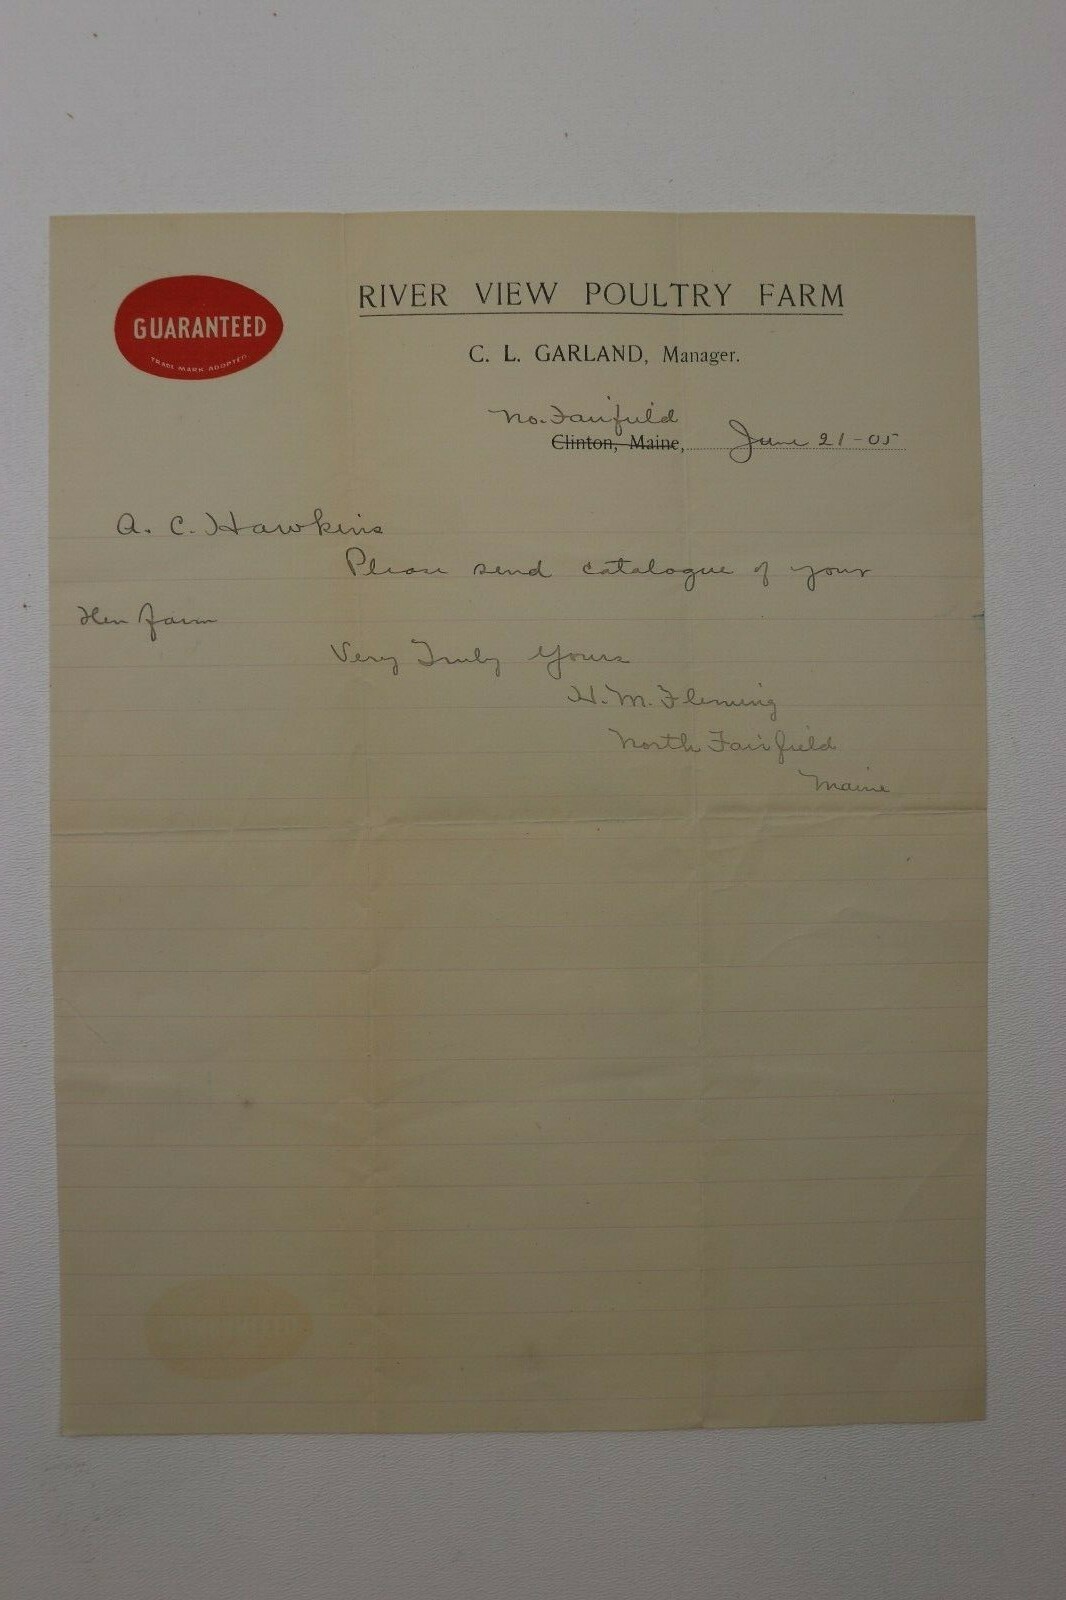 GUARANTEED
TRADE MARK ADOPTED.
RIVER VIEW POULTRY FARM
C. L. GARLAND, Manager.
No. Fairfield
Clinton, Maine, June 21-05
A. C. Hawkins
Please send catalogue of your
Hen farm
Very Truly Yours
H. M. Fleming
North Fairfield
Maine